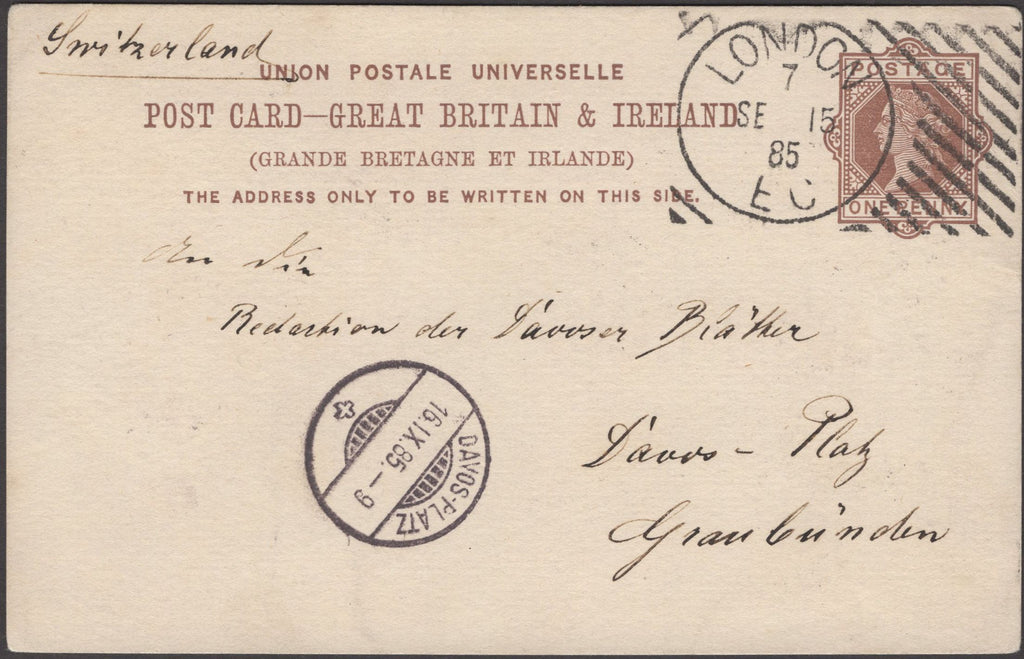 Switzerland
UNION POSTALE UNIVERSELLE
POST CARD—GREAT BRITAIN & IRELAND
(GRANDE BRETAGNE ET IRLANDE)
THE ADDRESS ONLY TO BE WRITTEN ON THIS SIDE.
LONDON
7
SE 15
85
E C
POSTAGE
ONE PENNY
An die
Redaktion der Davoser Blätter
Davos - Platz
Graubünden
16.IX.85.—9
DAVOS-PLATZ